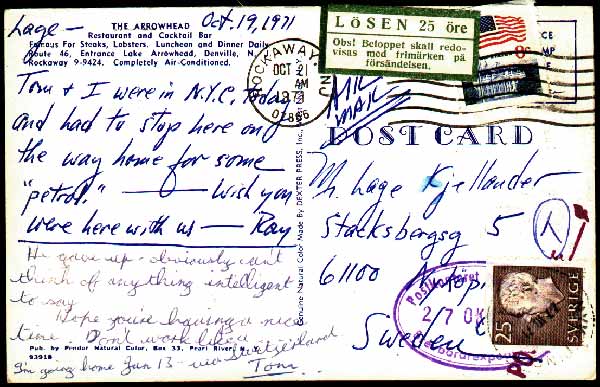 THE ARROWHEAD
Restaurant and Cocktail Bar
Famous For Steaks, Lobsters. Luncheon and Dinner Daily
Route 46, Entrance Lake Arrowhead, Denville, N.J.
Rockaway 9-9424. Completely Air-Conditioned.
Lage — Oct. 19, 1971
Tom & I were in N.Y.C. today
and had to stop here on
the way home for some
"petrol." — Wish you
were here with us — Ray
He gave up - obviously can't
think of anything intelligent
to say
Hope you're having a nice
time. Don't work like a
I'm going home Jan 13 - via Switzerland
Tom
Pub. by Pendor Natural Color, Box 33, Pearl River,
93918
Genuine Natural Color Made By DEXTER PRESS, Inc.,
ROCKAWAY, NJ
OCT 21
AM
1971
07866
LÖSEN 25 öre
Obs! Beloppet skall redo-
visas med frimärken på
försändelsen.
AIR
MAIL
POST CARD
Mr. Lage Kjellander
Stacksbergsg 5
61100 N.köp.
Sweden
T
Postkontoret
27 OK
25
SVERIGE